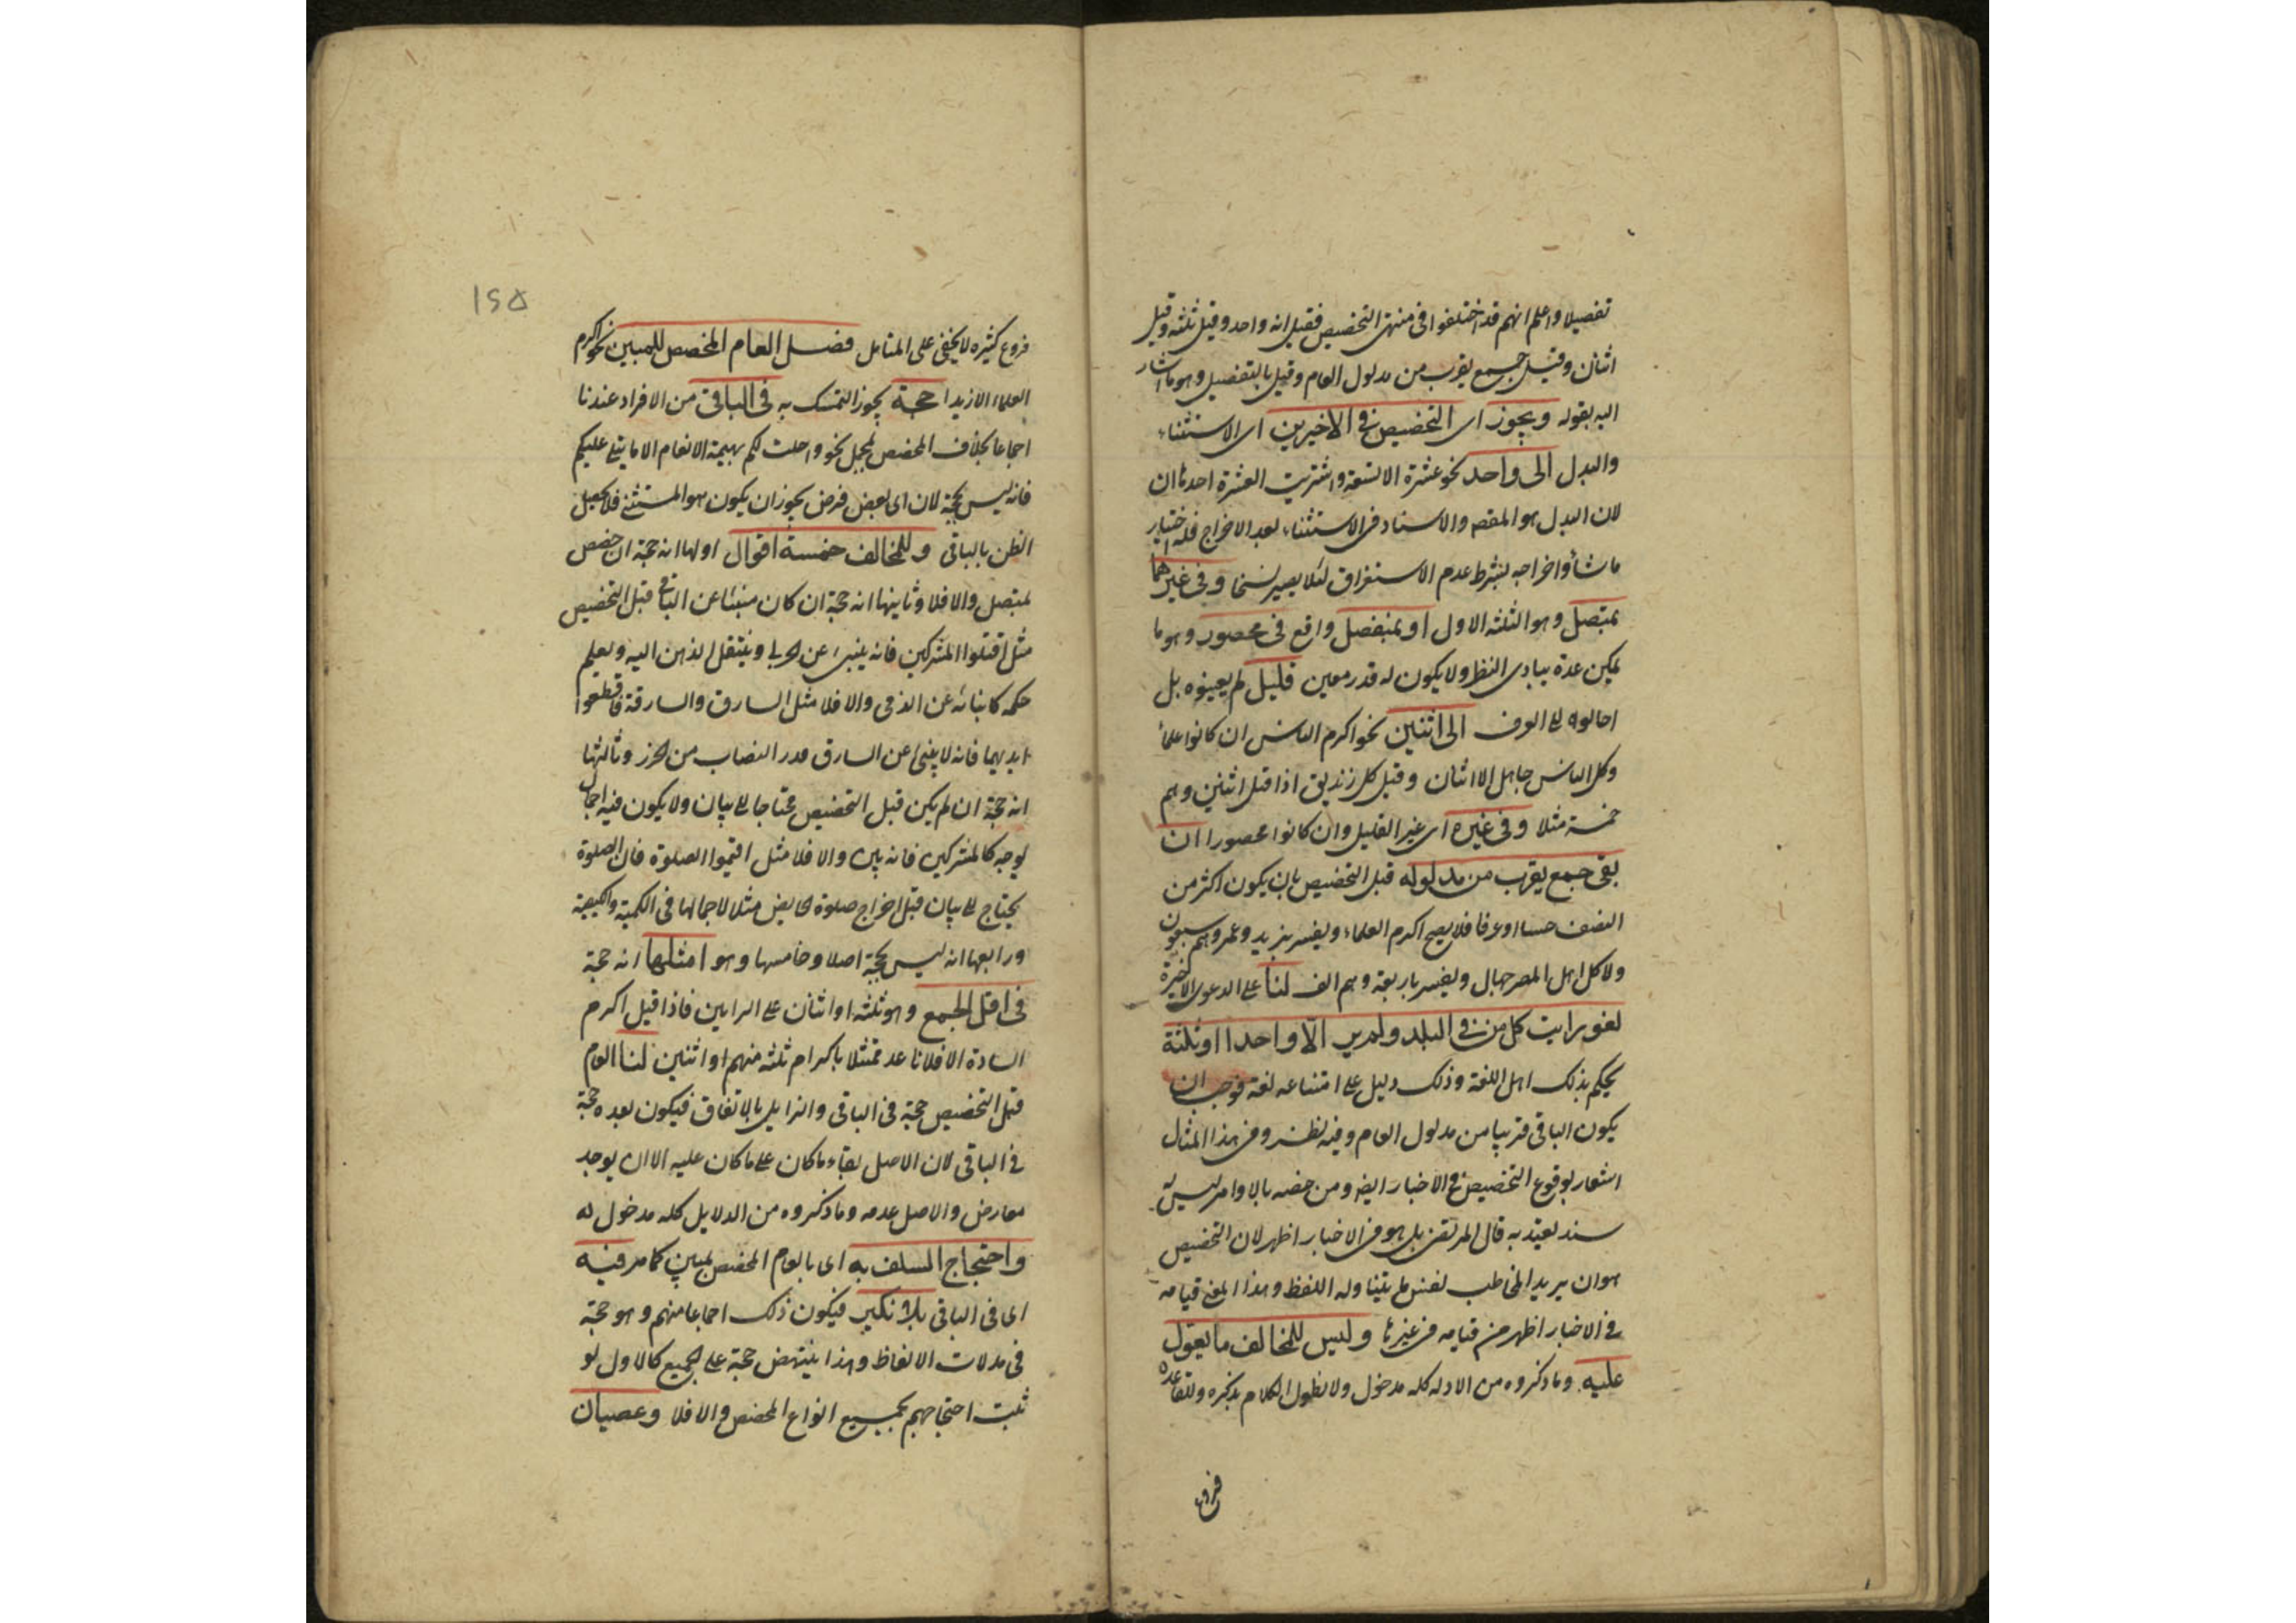 تفصيلا واعلم انهم قد اختلفوا في منتهى التخصيص فقيل انه واحد وقيل ثلثة وقيل
اثنان وقيل جمع يقرب من مدلول العام وقيل بالتفصيل وهو ما اشار
اليه بقوله ويجوز اى التخصيص في الاخيرين اى الاستثناء
والبدل الى واحد نحو عشرة الا تسعة واشتريت العشرة احدها ان
لان البدل هو المقصم والاسناد في الاستثناء بعد الاخراج فله اختيار
ما شاء واخراجه بشرط عدم الاستغراق لئلا يصير نسخا وفي غيرهما
بمتصل وهو الثلثة الاول او بمنفصل واقع في محصور وهو ما
يمكن عدة ببادى النظر ولا يكون له قدر معين قليل لم يعينوه بل
احالوه الى العرف الى اثنين نحو اكرم الناس ان كانوا علماء
وكل الناس جاهل الا اثنان وقتل كل زنديق اذا قتل اثنين وهم
خمسة مثلا وفي غيره اى غير القليل وان كانوا محصورا ان
بقى جمع يقرب من مدلوله قبل التخصيص بان يكون اكثر من
النصف حسا او عرفا فلا يصح اكرم العلماء ويفسر بزيد وعمرو وهم سبعون
ولا كل اهل المصر جهال ويفسر باربعة وهم الف لنا على الدعوى الاخيرة
لغو رايت كل من في البلد ولم ير الا واحدا او ثلثة
يحكم بذلك اهل اللغة وذلك دليل على امتناعه لغة فوجب ان
يكون الباقي قريبا من مدلول العام وفيه نظر وفي هذا المثال
اشعار بوقوع التخصيص في الاخبار ايضا ومن خصه بالاوامر ليس له
سند يعتد به قال المرتضى بل هو في الاخبار اظهر لان التخصيص
هو ان يريد المخاطب بعض ما يتناوله اللفظ وهذا المعنى قيامه
في الاخبار اظهر من قيامه في غيرها وليس للمخالف ما يعول
عليه وما ذكروه من الادلة كله مدخول ولا نطول الكلام بذكره وللقاعدة
فروع
١٤٥
فروع كثيره لا يخفى على المتامل فصل العام المخصص بالمبين نحو اكرم
العلماء الا زيدا حجة يجوز التمسك به في الباقي من الافراد عندنا
اجماعا بخلاف المخصص بمجمل نحو واحلت لكم بهيمة الانعام الا ما يتلى عليكم
فانه ليس بحجة لان اى بعض فرض يجوز ان يكون هو المستثنى فلا يحصل
الظن بالباقي وللمخالف خمسة اقوال اولها انه حجة ان خصص
بمتصل والا فلا وثانيها انه حجة ان كان منبئا عن الباقي قبل التخصيص
مثل اقتلوا المشركين فانه ينبىء عن الحربى وينتقل الذهن اليه ويعلم
حكمه كانبائه عن الذمى والا فلا مثل السارق والسارقة فاقطعوا
ايديهما فانه لا ينبئ عن السارق قدر النصاب من الحرز وثالثها
انه حجة ان لم يكن قبل التخصيص محتاجا الى بيان ولا يكون فيه اجمال
بوجه كالمشركين فانه بين والا فلا مثل اقيموا الصلوة فان الصلوة
يحتاج الى بيان قبل اخراج صلوة الحايض مثلا لاجمالها في الكمية والكيفية
ورابعها انه ليس بحجة اصلا وخامسها وهو امثلها انه حجة
في اقل الجمع وهو ثلثة او اثنان على الرايين فاذا قيل اكرم
السادة الا فلانا عد ممتثلا باكرام ثلثة منهم او اثنين لنا العام
قبل التخصيص حجة في الباقي والزايل بالاتفاق فيكون بعده حجة
في الباقي لان الاصل بقاء ما كان على ما كان عليه الا ان يوجد
معارض والاصل عدمه وما ذكروه من الدلايل كله مدخول له
واحتجاج السلف به اى بالعام المخصص بمبين كما مر فيه
اى في الباقي بلا نكير فيكون ذلك اجماعا منهم وهو حجة
في مدلات الالفاظ وهذا ينتهض حجة على الجميع كالاول لو
ثبت احتجاجهم بجميع انواع المخصص والا فلا وعصيان